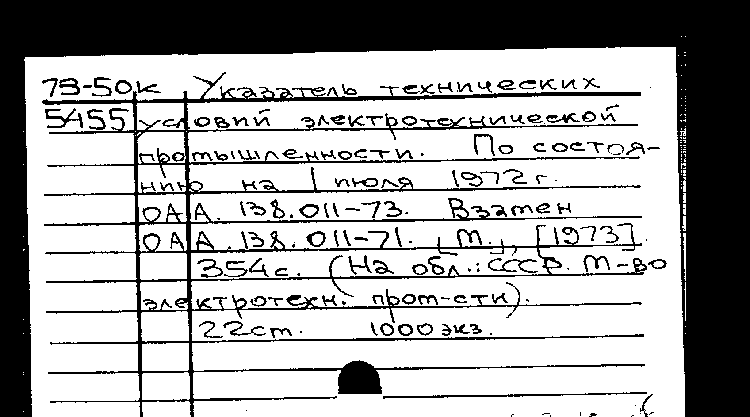 73-50к Указатель технических
5455 условий электротехнической
промышленности. По состоя-
нию на 1 июля 1972 г.
ОАА. 138.011-73. Взамен
ОАА. 138.011-71. [М.], [1973].
354 с. (На обл.: СССР. М-во
электротехн. пром-сти).
22 см. 1000 экз.